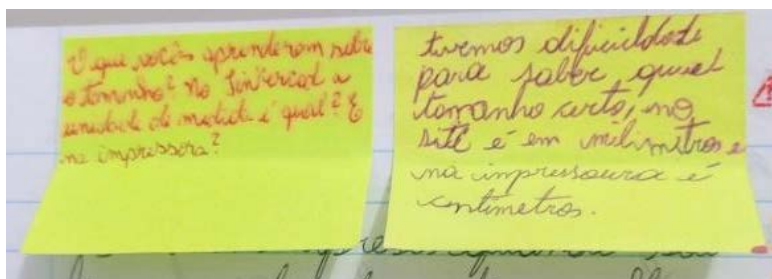 O que vocês aprenderam sobre
o tamanho? No Tinkercad a
unidade de medida é qual? E
na impressora?
tivemos dificuldade
para saber qual
tamanho certo, no
site é em milimitros e
na impressoura é
centimetros.